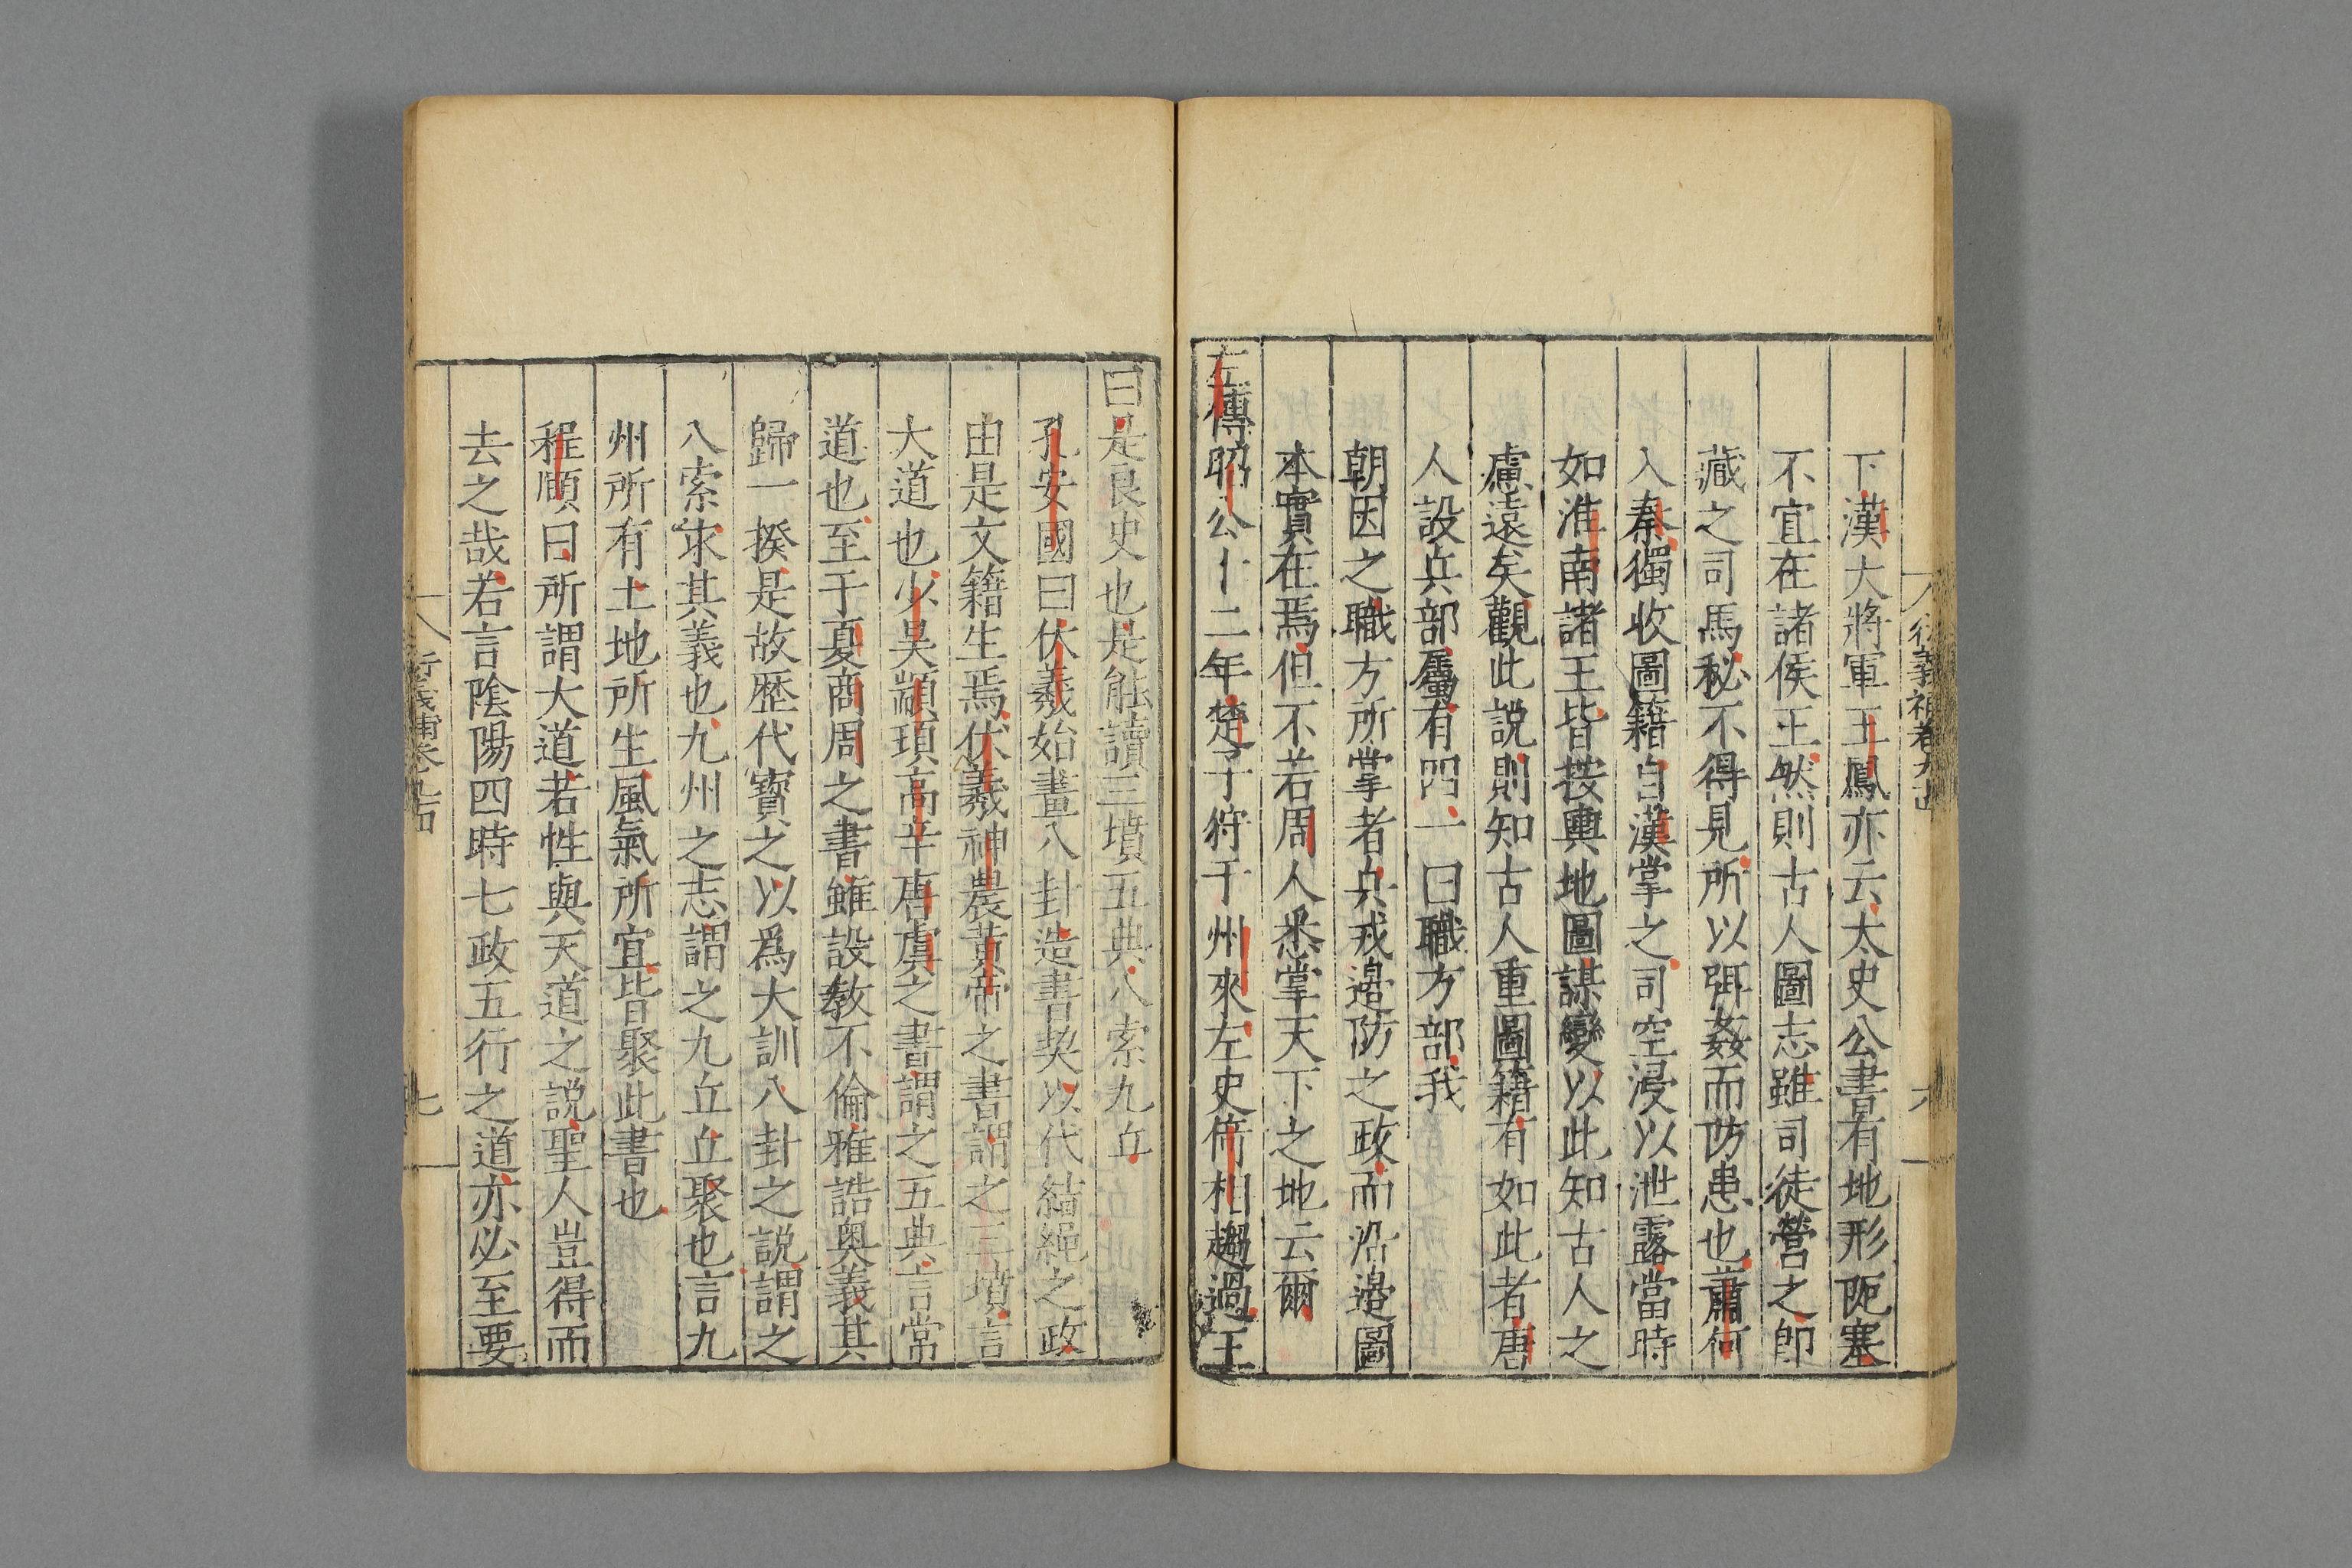 衍義補卷九十四
六
下漢大將軍王鳳亦云太史公書有地形阨塞
不宜在諸侯王然則古人圖志雖司徒營之即
藏之司馬秘不得見所以弭姦而防患也蕭何
入秦獨收圖籍自漢掌之司空浸以泄露當時
如淮南諸王皆按輿地圖謀變以此知古人之
慮遠矣觀此說則知古人重圖籍有如此者唐
人設兵部屬有四一曰職方部我
朝因之職方所掌者兵戎邊防之政而沿邊圖
本實在焉但不若周人悉掌天下之地云爾
左傳昭公十二年楚子狩于州來左史倚相趨過王
曰是良史也是能讀三墳五典八索九丘
孔安國曰伏羲始畫八卦造書契以代結繩之政
由是文籍生焉伏羲神農黃帝之書謂之三墳言
大道也少昊顓頊高辛唐虞之書謂之五典言常
道也至于夏商周之書雖設敎不倫雅誥奥義其
歸一揆是故歷代寳之以爲大訓八卦之說謂之
八索求其義也九州之志謂之九丘丘聚也言九
州所有土地所生風氣所宜皆聚此書也
程頤曰所謂大道若性與天道之說聖人豈得而
去之哉若言陰陽四時七政五行之道亦必至要
衍義補卷九十四
七